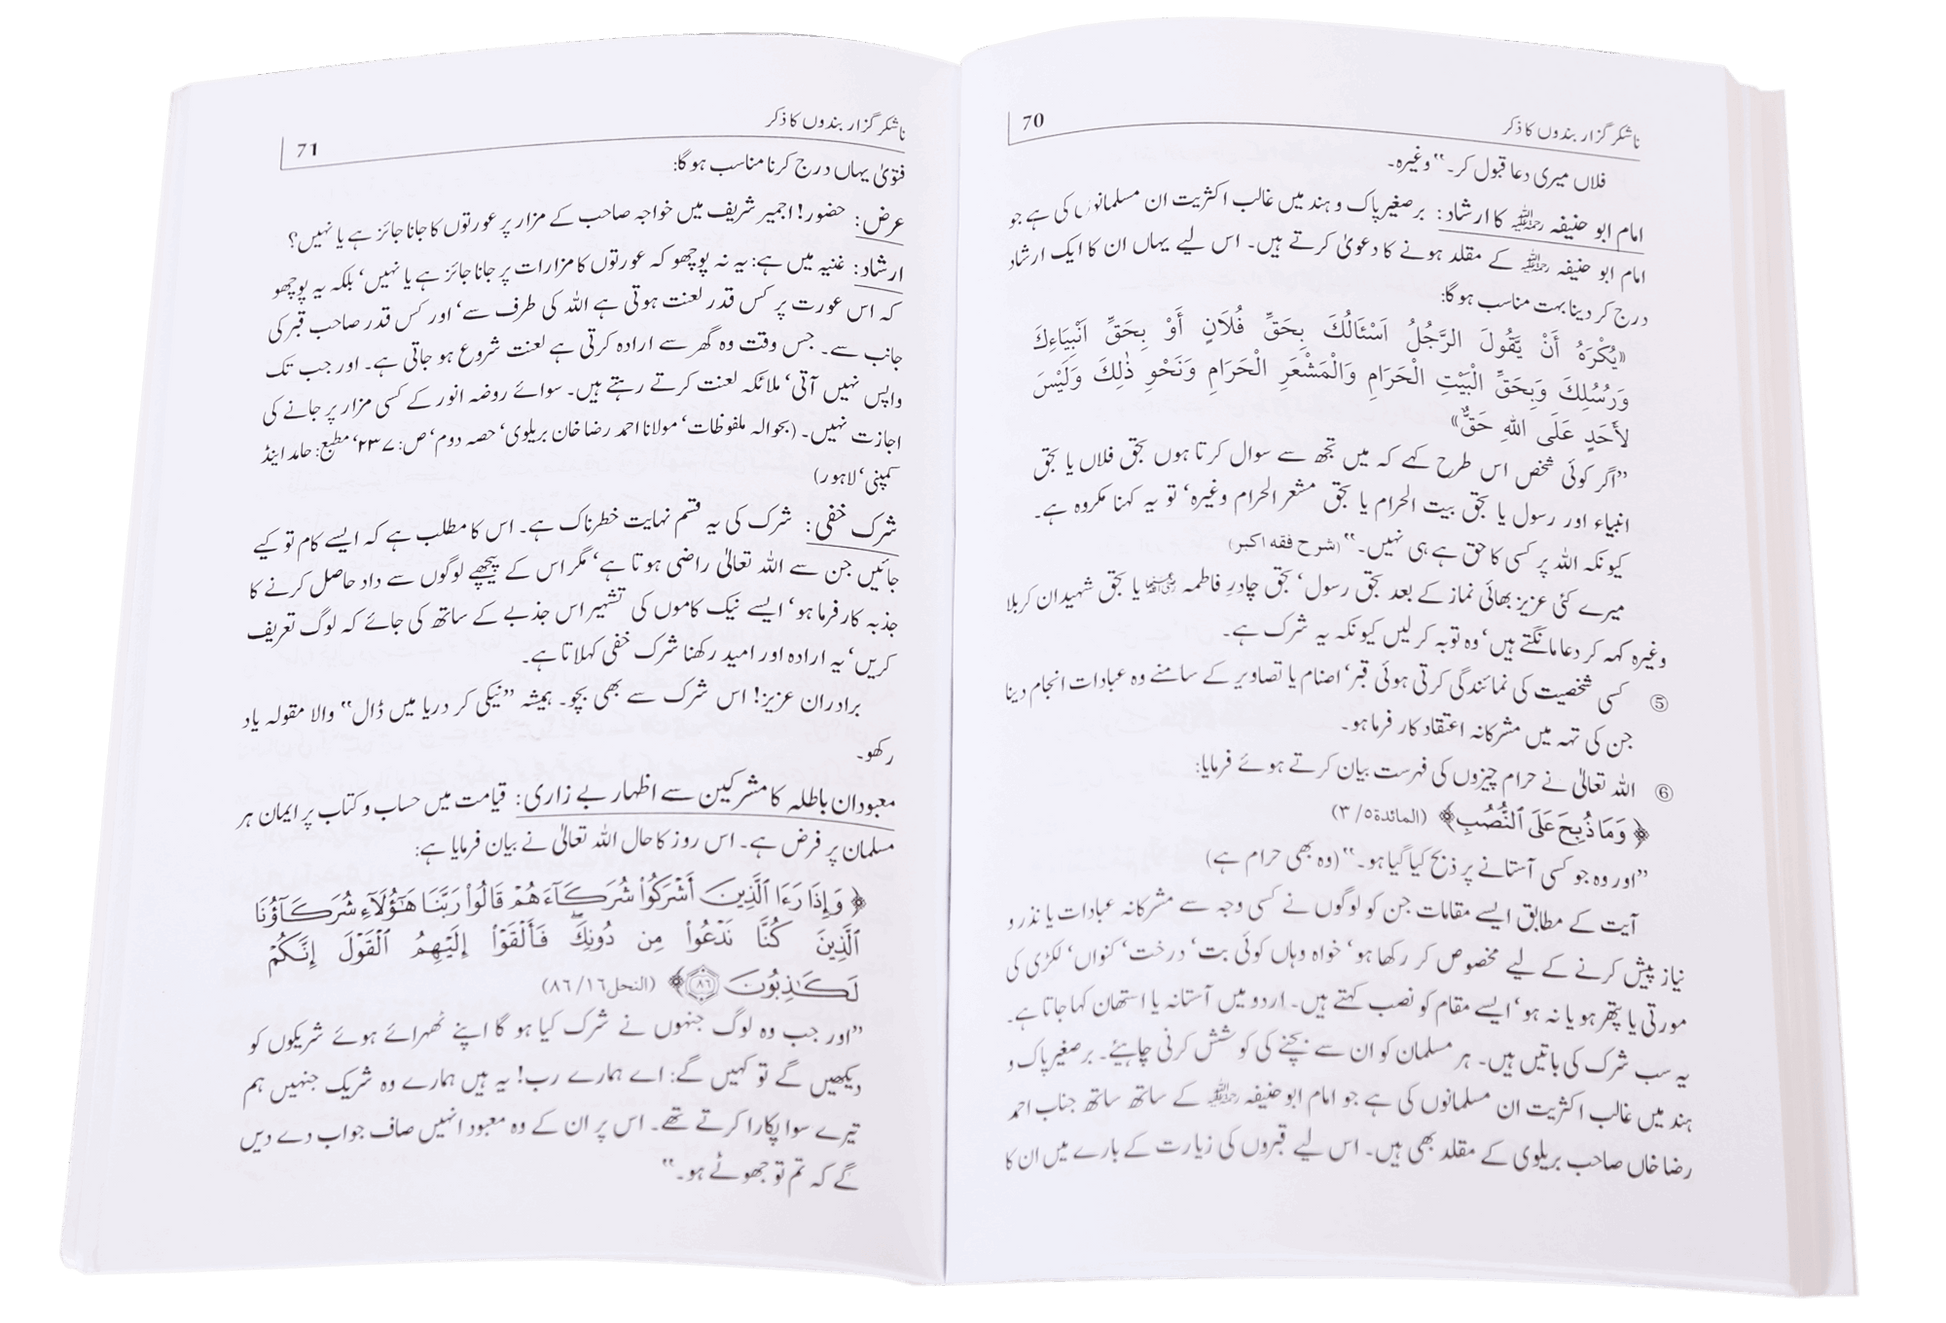 ناشکر گزار بندوں کا ذکر 70
فلاں میری دعا قبول کر۔“ وغیرہ۔
امام ابو حنیفہ رحمۃ اللہ علیہ کا ارشاد: برصغیر پاک و ہند میں غالب اکثریت ان مسلمانوں کی ہے جو
امام ابو حنیفہ رحمۃ اللہ علیہ کے مقلد ہونے کا دعویٰ کرتے ہیں۔ اس لیے یہاں ان کا ایک ارشاد
درج کر دینا بہت مناسب ہوگا:
«يُكْرَهُ أَنْ يَّقُولَ الرَّجُلُ اَسْئَالُكَ بِحَقِّ فُلَانٍ أَوْ بِحَقِّ اَنْبِيَاءِكَ
وَرُسُلِكَ وَبِحَقِّ الْبَيْتِ الْحَرَامِ وَالْمَشْعَرِ الْحَرَامِ وَنَحْوِ ذٰلِكَ وَلَيْسَ
لِأَحَدٍ عَلَى اللهِ حَقٌّ»
”اگر کوئی شخص اس طرح کہے کہ میں تجھ سے سوال کرتا ہوں بحق فلاں یا بحق
انبیاء اور رسول یا بحق بیت الحرام یا بحق مشعر الحرام وغیرہ‘ تو یہ کہنا مکروہ ہے۔
کیونکہ اللہ پر کسی کا حق ہے ہی نہیں۔“ (شرح فقه اکبر)
میرے کئی عزیز بھائی نماز کے بعد بحق رسول‘ بحق چادرِ فاطمہ رضی اللہ عنہا یا بحق شہیدان کربلا
وغیرہ کہہ کر دعا مانگتے ہیں‘ وہ توبہ کر لیں کیونکہ یہ شرک ہے۔
⑤ کسی شخصیت کی نمائندگی کرتی ہوئی قبر‘ اصنام یا تصاویر کے سامنے وہ عبادات انجام دینا
جن کی تہہ میں مشرکانہ اعتقاد کار فرما ہو۔
⑥ اللہ تعالیٰ نے حرام چیزوں کی فہرست بیان کرتے ہوئے فرمایا:
﴿ وَمَا ذُبِحَ عَلَى ٱلنُّصُبِ﴾ (المائدة ۵/ ۳)
”اور وہ جو کسی آستانے پر ذبح کیا گیا ہو۔“ (وہ بھی حرام ہے)
آیت کے مطابق ایسے مقامات جن کو لوگوں نے کسی وجہ سے مشرکانہ عبادات یا نذر و
نیاز پیش کرنے کے لیے مخصوص کر رکھا ہو‘ خواہ وہاں کوئی بت‘ درخت‘ کنواں‘ لکڑی کی
مورتی یا پتھر ہو یا نہ ہو‘ ایسے مقام کو نصب کہتے ہیں۔ اردو میں آستانہ یا استھان کہا جاتا ہے۔
یہ سب شرک کی باتیں ہیں۔ ہر مسلمان کو ان سے بچنے کی کوشش کرنی چاہئے۔ برصغیر پاک و
ہند میں غالب اکثریت ان مسلمانوں کی ہے جو امام ابو حنیفہ رحمۃ اللہ علیہ کے ساتھ ساتھ جناب احمد
رضا خاں صاحب بریلوی کے مقلد بھی ہیں۔ اس لیے قبروں کی زیارت کے بارے میں ان کا
ناشکر گزار بندوں کا ذکر 71
فتویٰ یہاں درج کرنا مناسب ہوگا:
عرض: حضور! اجمیر شریف میں خواجہ صاحب کے مزار پر عورتوں کا جانا جائز ہے یا نہیں؟
ارشاد: غنیہ میں ہے: یہ نہ پوچھو کہ عورتوں کا مزارات پر جانا جائز ہے یا نہیں‘ بلکہ یہ پوچھو
کہ اس عورت پر کس قدر لعنت ہوتی ہے اللہ کی طرف سے‘ اور کس قدر صاحب قبر کی
جانب سے۔ جس وقت وہ گھر سے ارادہ کرتی ہے لعنت شروع ہو جاتی ہے۔ اور جب تک
واپس نہیں آتی‘ ملائکہ لعنت کرتے رہتے ہیں۔ سوائے روضہ انور کے کسی مزار پر جانے کی
اجازت نہیں۔ (بحوالہ ملفوظات‘ مولانا احمد رضا خان بریلوی‘ حصہ دوم‘ ص: ۲۳۷‘ مطبع: حامد اینڈ
کمپنی‘ لاہور)
شرک خفی: شرک کی یہ قسم نہایت خطرناک ہے۔ اس کا مطلب ہے کہ ایسے کام تو کیے
جائیں جن سے اللہ تعالیٰ راضی ہوتا ہے‘ مگر اس کے پیچھے لوگوں سے داد حاصل کرنے کا
جذبہ کار فرما ہو‘ ایسے نیک کاموں کی تشہیر اس جذبے کے ساتھ کی جائے کہ لوگ تعریف
کریں‘ یہ ارادہ اور امید رکھنا شرک خفی کہلاتا ہے۔
برادران عزیز! اس شرک سے بھی بچو۔ ہمیشہ ”نیکی کر دریا میں ڈال“ والا مقولہ یاد
رکھو۔
معبودان باطلہ کا مشرکین سے اظہار بے زاری: قیامت میں حساب و کتاب پر ایمان ہر
مسلمان پر فرض ہے۔ اس روز کا حال اللہ تعالیٰ نے بیان فرمایا ہے:
﴿ وَإِذَا رَءَا ٱلَّذِينَ أَشْرَكُوا۟ شُرَكَآءَهُمْ قَالُوا۟ رَبَّنَا هَٰٓؤُلَآءِ شُرَكَآؤُنَا
ٱلَّذِينَ كُنَّا نَدْعُوا۟ مِن دُونِكَ ۖ فَأَلْقَوْا۟ إِلَيْهِمُ ٱلْقَوْلَ إِنَّكُمْ
لَكَٰذِبُونَ ۝٨٦﴾ (النحل ۱۶/ ۸۶)
”اور جب وہ لوگ جنہوں نے شرک کیا ہو گا اپنے ٹھہرائے ہوئے شریکوں کو
دیکھیں گے تو کہیں گے: اے ہمارے رب! یہ ہیں ہمارے وہ شریک جنہیں ہم
تیرے سوا پکارا کرتے تھے۔ اس پر ان کے وہ معبود انہیں صاف جواب دے دیں
گے کہ تم تو جھوٹے ہو۔“